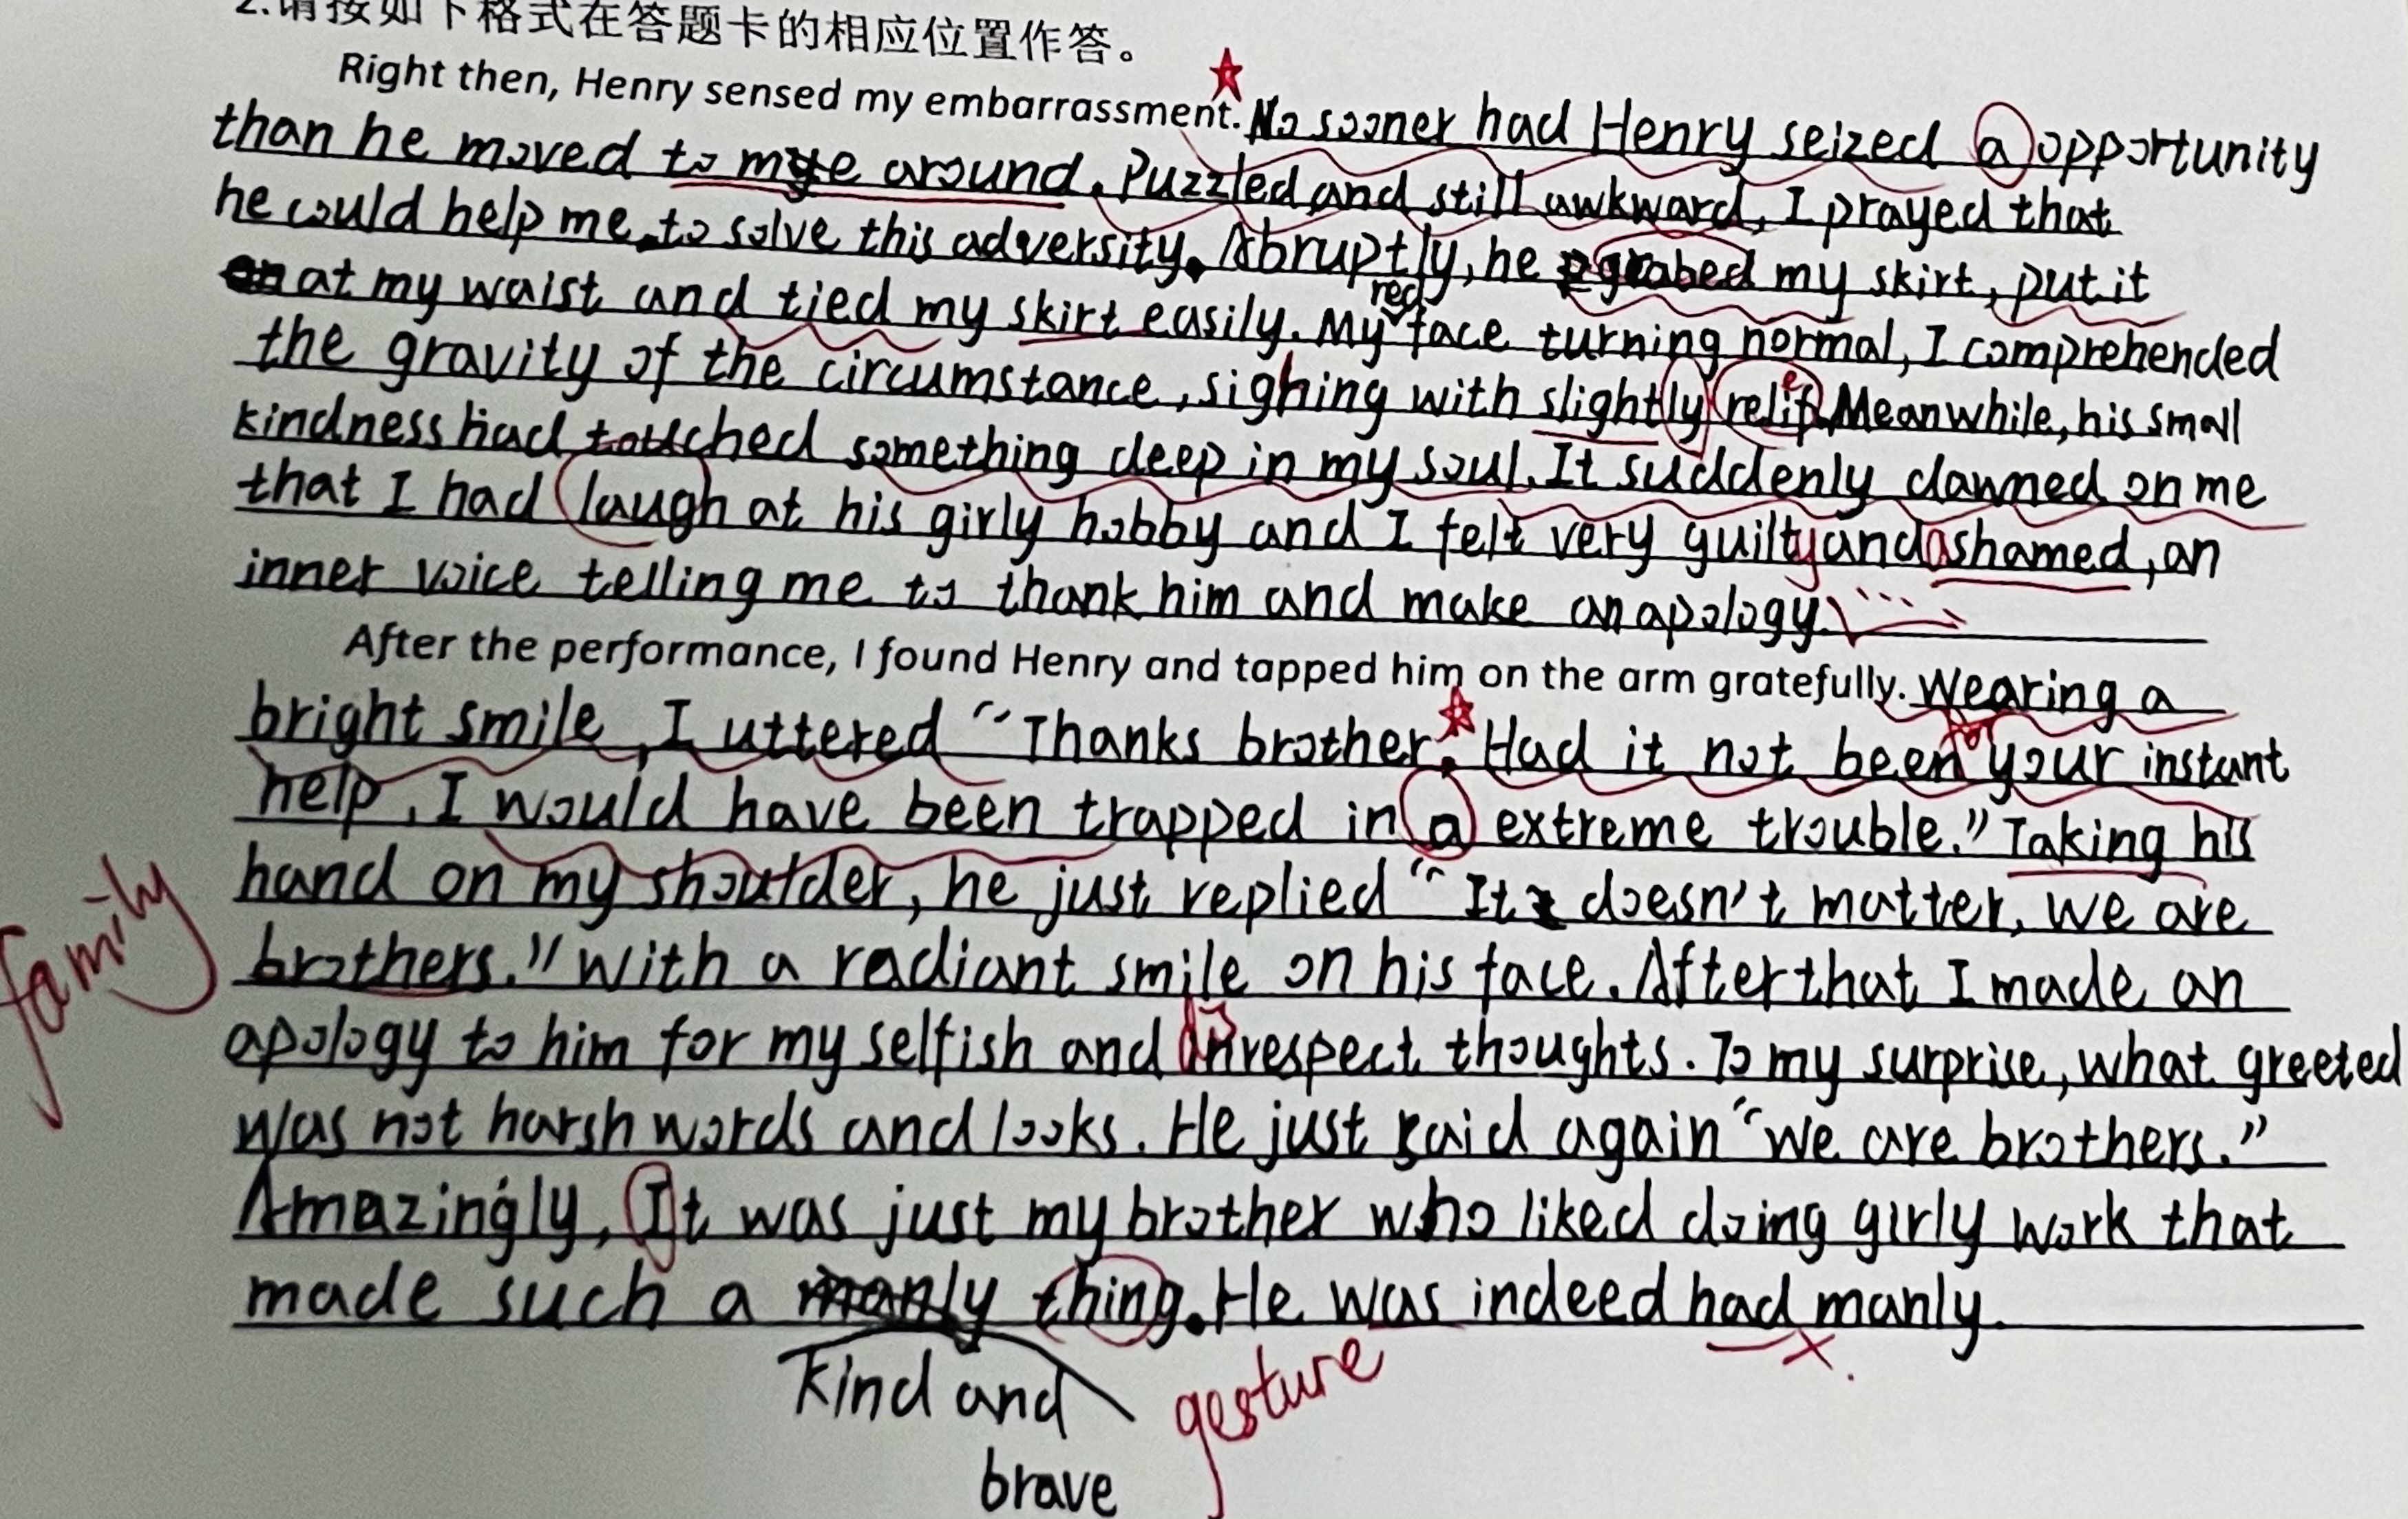 2.请按如下格式在答题卡的相应位置作答。
Right then, Henry sensed my embarrassment. No sooner had Henry seized a opportunity
than he moved to me around. Puzzled and still awkward, I prayed that
he could help me to solve this adversity. Abruptly, he grabed my skirt, put it
at my waist and tied my skirt easily. My red face turning normal, I comprehended
the gravity of the circumstance, sighing with slightly relief. Meanwhile, his small
kindness had touched something deep in my soul. It suddenly dawned on me
that I had laugh at his girly hobby and I felt very guilty and ashamed, an
inner voice telling me to thank him and make an apology.
After the performance, I found Henry and tapped him on the arm gratefully. Wearing a
bright smile, I uttered "Thanks brother. Had it not been for your instant
help, I would have been trapped in a extreme trouble." Taking his
hand on my shoulder, he just replied "It doesn't matter, we are
family
brothers." With a radiant smile on his face. After that I made an
apology to him for my selfish and disrespect thoughts. To my surprise, what greeted
was not harsh words and looks. He just said again "we are brothers."
Amazingly, It was just my brother who liked doing girly work that
made such a manly thing. He was indeed had manly.
kind and
gesture
brave